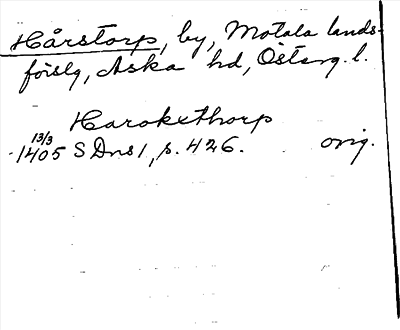 Hårstorp, by, Motala lands-
förslg, Aska hd, Österg. l.
Haroksthorp
13/3
1405 SDns 1, p. 426. orig.